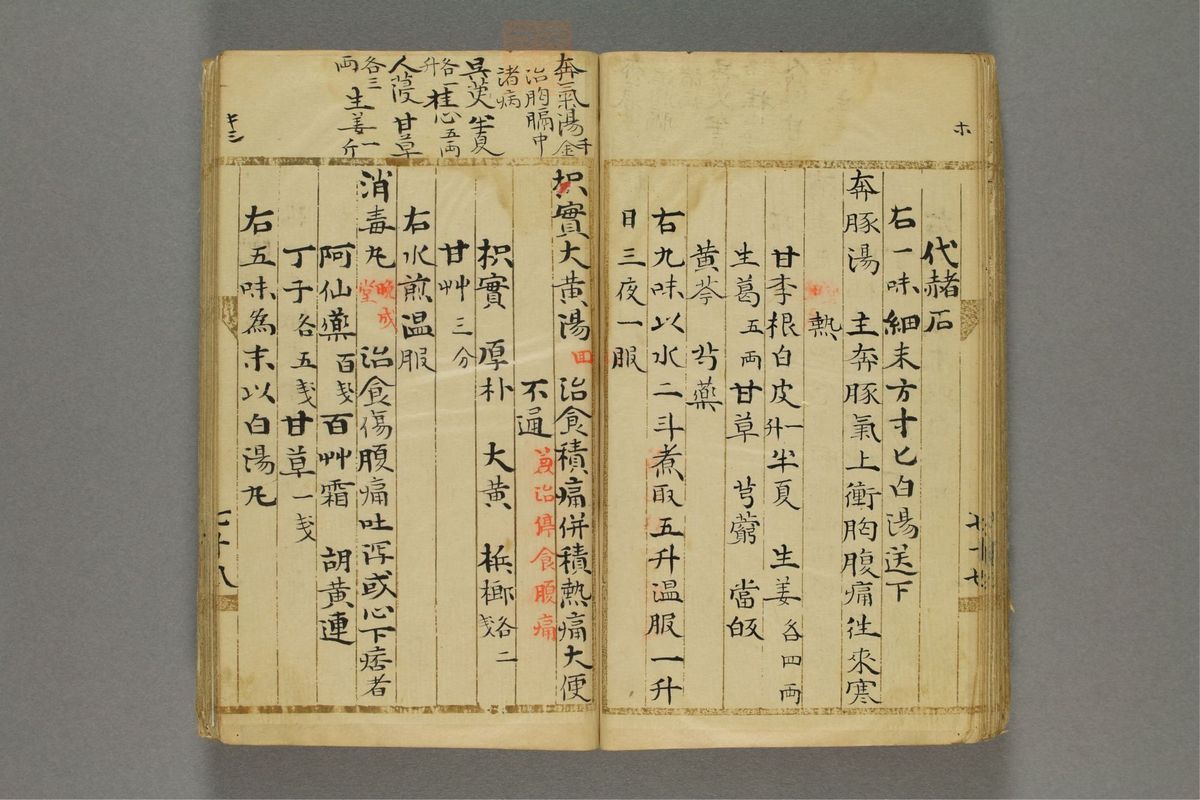 ホ
代赭石
右一味細末方寸匕白湯送下
奔豚湯 主奔豚氣上衝胸腹痛往來寒
熱
甘李根白皮一升 半夏 生姜各四両
生葛五両 甘草 芎藭 當皈
黄芩 芍薬
右九味以水二斗煮取五升温服一升
日三夜一服
奔氣湯千金
治胸膈中
諸病
呉茱 半夏
各一升 桂心五両
人蓡 甘草
各三両 生姜一斤
枳實大黄湯 回 治食積痛併積熱痛大便
不通 兼治停食腹痛
枳實 厚朴 大黄 梹榔各二戔
甘艸三分
右水煎温服
消毒丸 晩成堂 治食傷腹痛吐瀉或心下痞者
阿仙薬百戔 百艸霜 胡黄連
丁子各五戔 甘草一戔
右五味為末以白湯丸
七十八